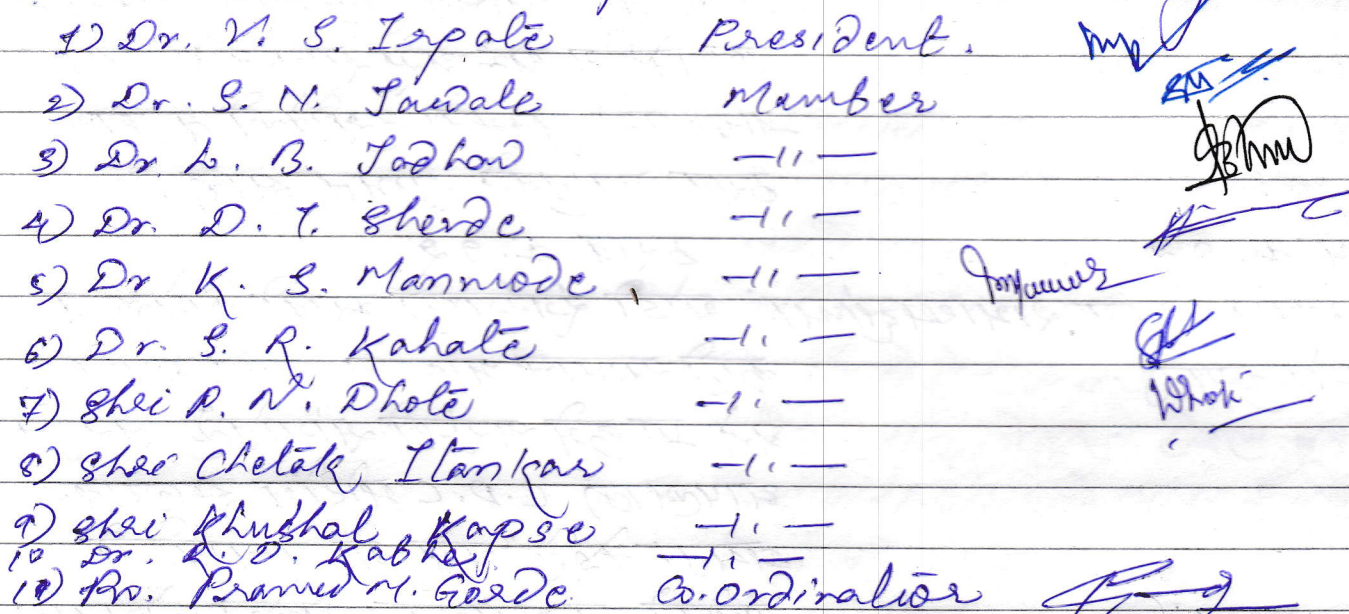 1) Dr. V. S. Irpate President.
2) Dr. S. N. Tawale Mamber
3) Dr. L. B. Jadhav —11—
4) Dr. D. T. Shende —11—
5) Dr K. S. Manmode —11—
6) Dr. S. R. Kahate —11—
7) Shri P. N. Dhote —11—
8) Shri Chetak Itankar —11—
9) Shri Khushal Kapse —11—
10 Dr. R. D. —11—
11) Pramod M. Gorde Co.Ordinator